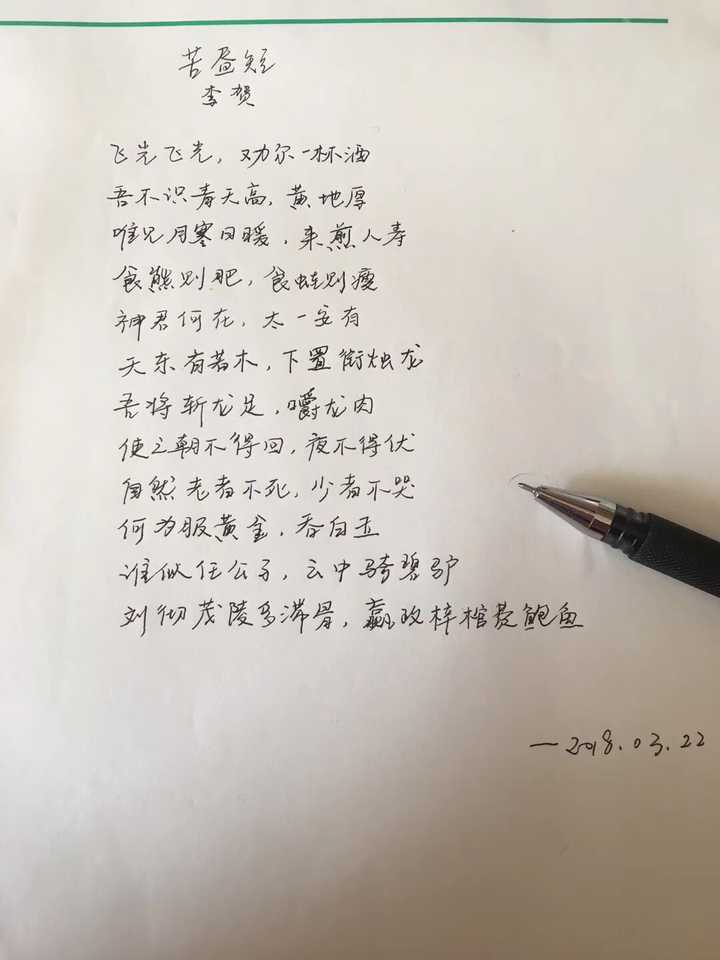 苦昼短
李贺
飞光飞光，劝尔一杯酒
吾不识青天高，黄地厚
唯见月寒日暖，来煎人寿
食熊则肥，食蛙则瘦
神君何在，太一安有
天东有若木，下置衔烛龙
吾将斩龙足，嚼龙肉
使之朝不得回，夜不得伏
自然老者不死，少者不哭
何为服黄金，吞白玉
谁似任公子，云中骑碧驴
刘彻茂陵多滞骨，嬴政梓棺费鲍鱼
—2018.03.22